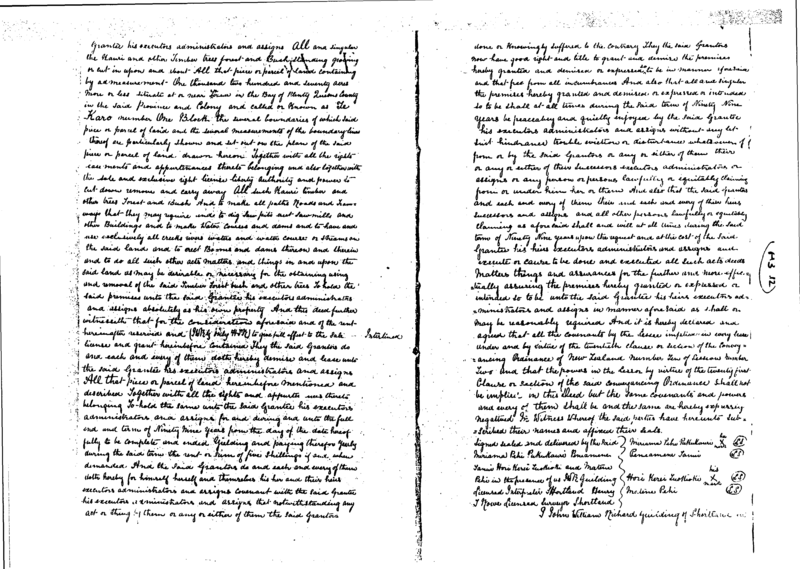 Grantee his executors administrators and assigns All and singular
the Kauri and other Timber trees forest and Bush standing growing
or cut in upon and about All that piece or parcel of land containing
by admeasurement One thousand two hundred and seventy acres
more or less situate at or near in the Bay of Plenty Queens County
in the said Province and Colony and called or known as Te
Karo number One Block the several boundaries of which said
piece or parcel of land and the several measurements of the boundary lines
thereof are particularly shewn and set out on the plan of the said
piece or parcel of land drawn hereon Together with all the rights
easements and appurtenances thereto belonging and also together with
the sole and exclusive right license liberty authority and power to
cut down remove and carry away All such Kauri timber and
other trees Forest and Bush And to make all paths Roads and
ways that they may require and to dig Saw pits erect Sawmills and
other Buildings and to make Water Courses and dams and to have and
use exclusively all creeks rivers waters and water courses or streams on
the said lands and to erect Booms and dams thereon and therein
and to do all such other acts matters and things in and upon the
said land as may be desirable or necessary for the obtaining using
and removal of the said Timber Forest bush and other trees To hold the
said premises unto the said Grantee his executors administrators
and assigns absolutely as his own property And this deed further
witnesseth that for the considerations aforesaid and of the rent
hereinafter reserved and to give full effect to the sale
license and grant hereinbefore contained They the said Grantors do
and each and every of them doth hereby demise and lease unto
the said Grantee his executors administrators and assigns
All that piece or parcel of land hereinbefore mentioned and
described Together with all the rights and appurtenances thereto
belonging To hold the same unto the said Grantee his executors
administrators and assigns for and during and unto the full
end and term of Ninety Nine years from the day of the date hereof
fully to be complete and ended Yielding and paying therefor yearly
during the said term the rent or sum of five shillings if and when
demanded And the said Grantors do and each and every of them
doth hereby for himself herself and themselves his her and their heirs
executors administrators and assigns covenant with the said Grantee
his executors administrators and assigns that notwithstanding any
act or thing by them or any or either of them the said Grantors
Interlined
done or knowingly suffered to the contrary They the said Grantors
now have good right and title to grant and demise the premises
hereby granted and demised or expressed to be in manner aforesaid
and that free from all incumbrances And also that all and singular
the premises hereby granted and demised or expressed or intended
so to be shall at all times during the said term of Ninety Nine
years be peaceably and quietly enjoyed by the said Grantee
his executors administrators and assigns without any let
suit hindrance trouble eviction or disturbance whatsoever of
from or by the said Grantors or any or either of them their
or any or either of their successors executors administrators or
assigns or any person or persons lawfully or equitably claiming
from or under him her or them And also that the said Grantors
and each and every of them their and each and every of their heirs
successors and assigns and all other persons lawfully or equitably
claiming as aforesaid shall and will at all times during the said
term of Ninety Nine years upon the request and at the cost of the said
Grantee his heirs executors administrators and assigns and
execute or cause to be done and executed all such acts deeds
Matters things and assurances for the further and more effec-
-tually assuring the premises hereby granted or expressed or
intended so to be unto the said Grantee his heirs executors ad-
-ministrators and assigns in manner aforesaid as shall or
may be reasonably required And it is hereby declared and
agreed that all the covenants by the lessee implied in every lease
under and by virtue of the twentieth clause or section of the Convey-
-ancing Ordinance of New Zealand Number Ten of Sessions number
Two and that the powers in the lessor by virtue of the twenty first
Clause or section of the said Conveyancing Ordinance shall not
be implied in this Deed but the same covenants and powers
and every of them shall be and the same are hereby expressly
negatived In Witness whereof the said parties have hereunto sub-
scribed their names and affixed their seals.
Signed sealed and delivered by the said
his
x
mark
LS
LS
his
x
mark
LS
LS
in the presence of us
Licensed Interpreter Shortland
Licensed Surveyor Shortland
I John William Richard Guilding of Shortland